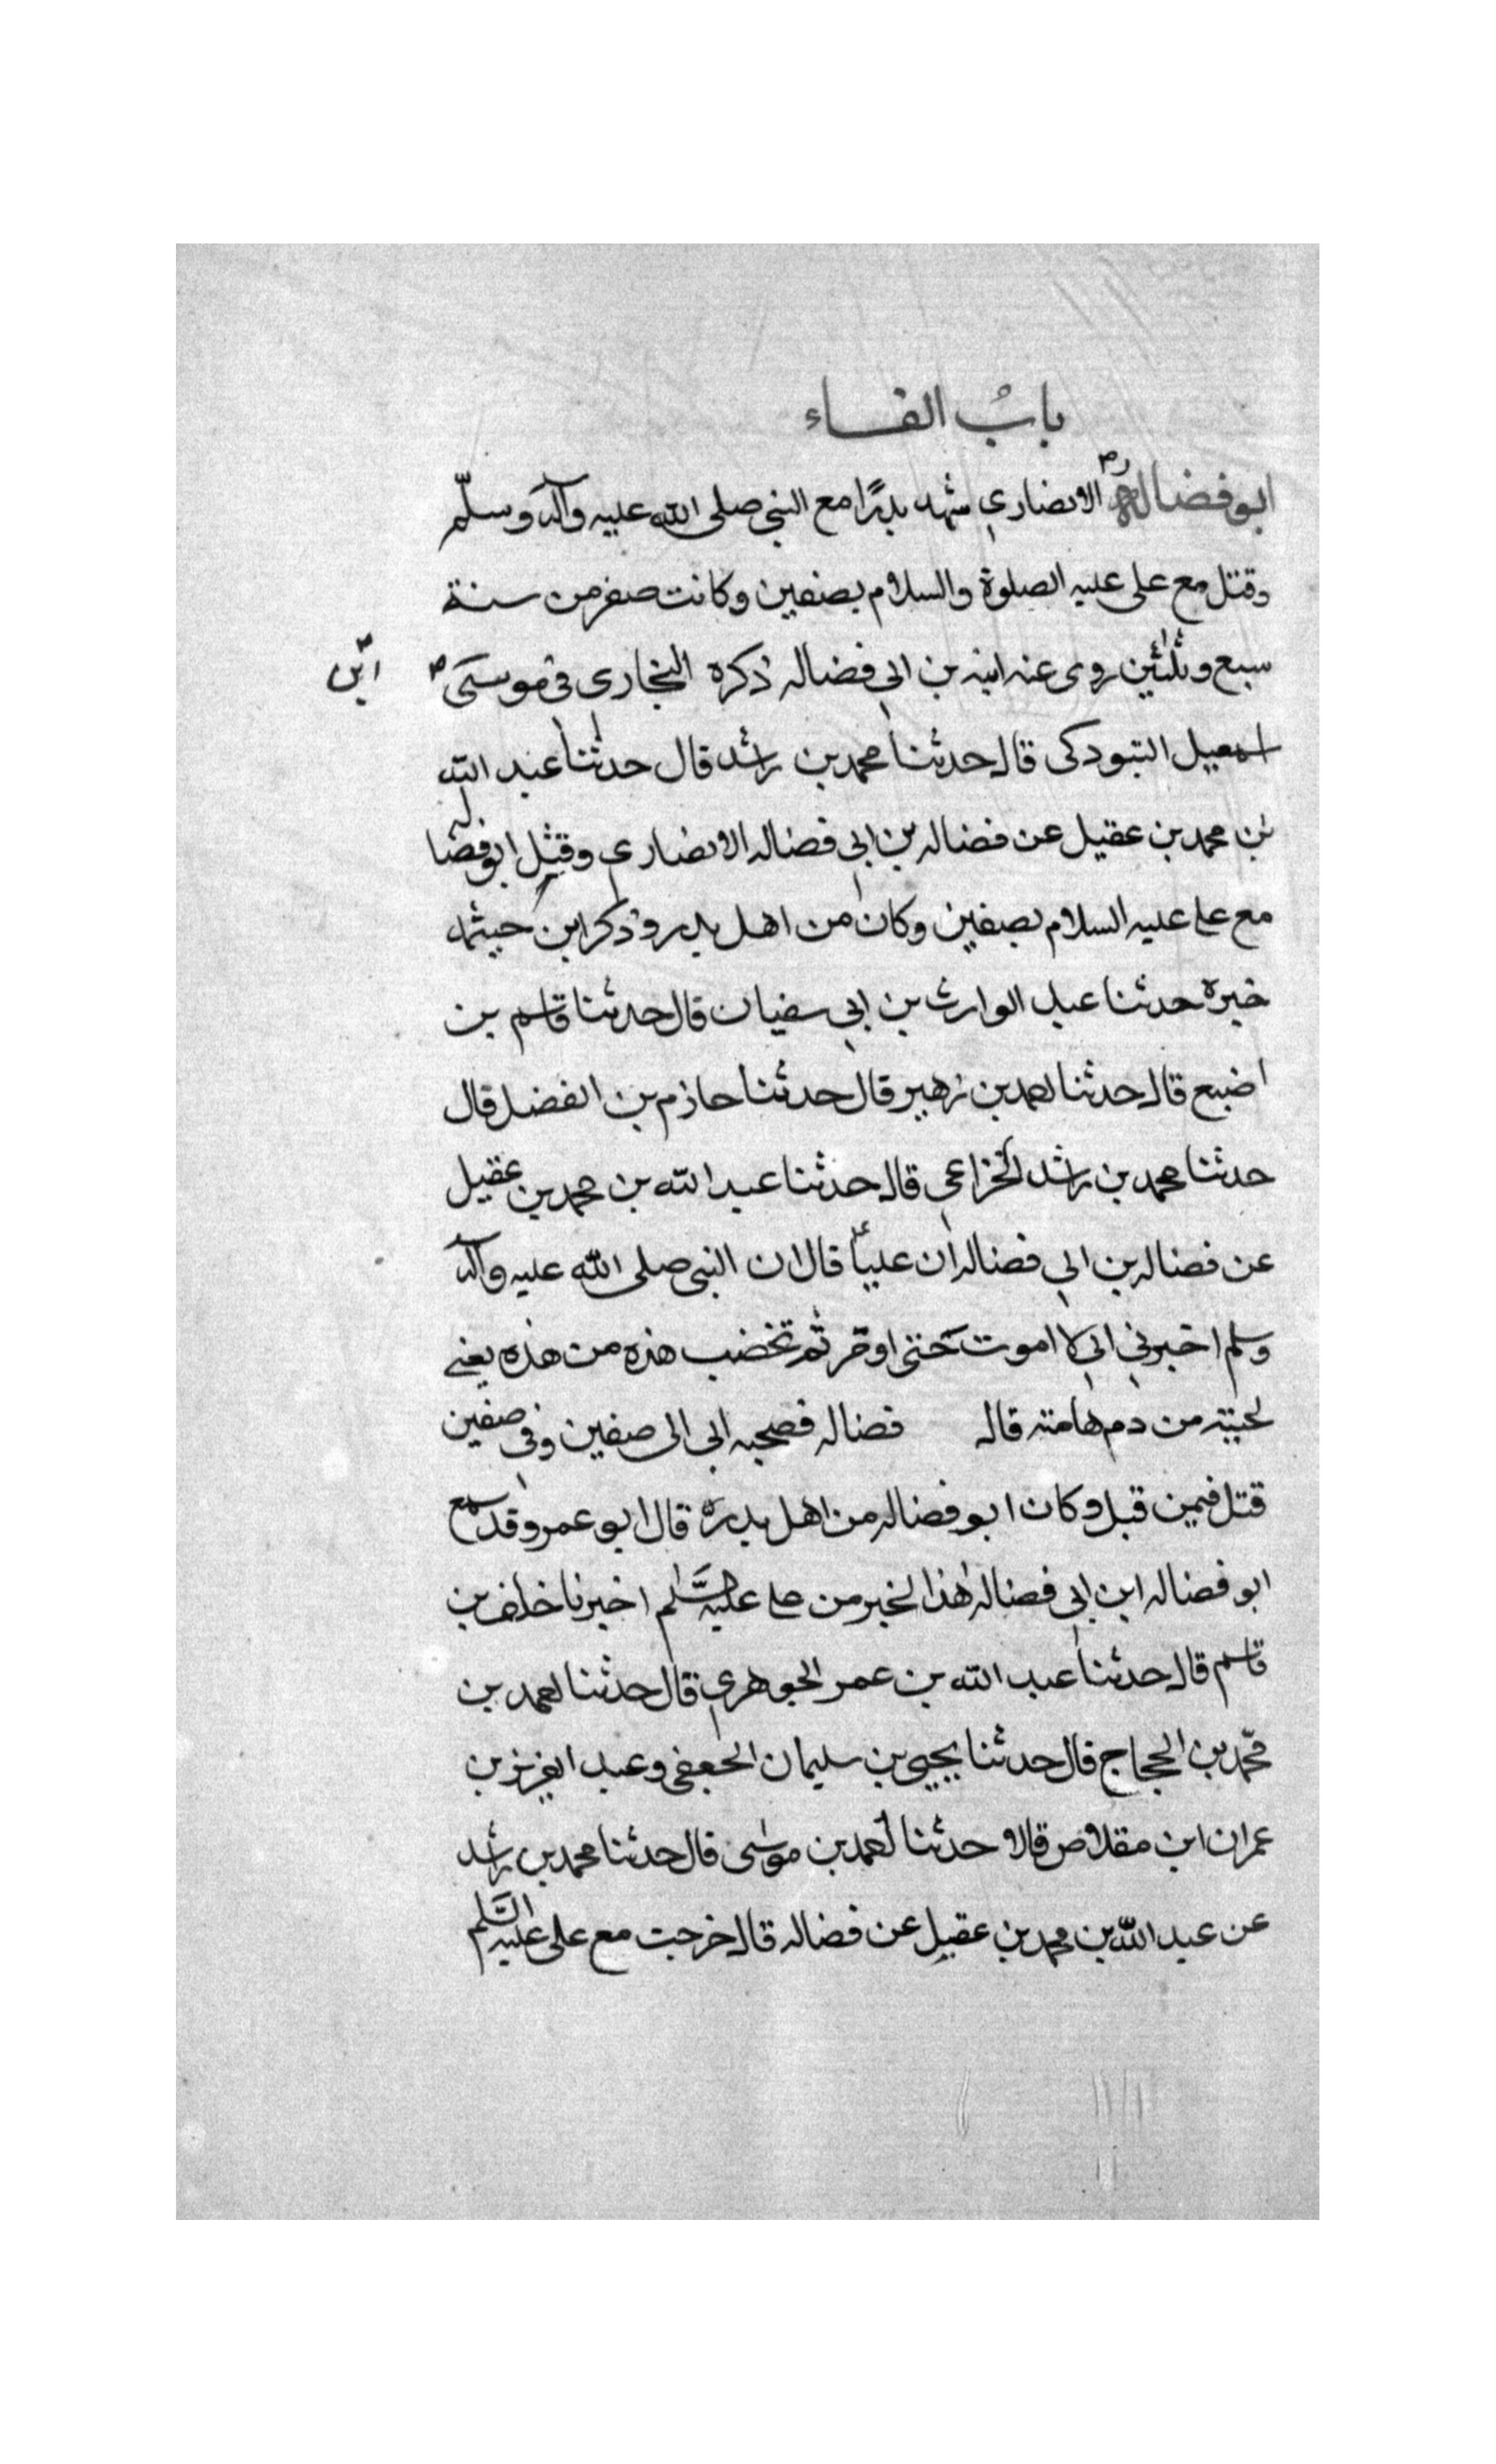 بابُ الفاء
ابو فضاله الانصاري شهد بدرًا مع النبي صلى الله عليه وآله وسلّم
وقتل مع على عليه الصلوة والسلام بصفين وكانت صفر من سنة
سبع وثلثين روى عنه ابنه بن ابي فضاله ذكره البخاري في موسى ابن
اسمعيل التبودكى قال حدثنا محمد بن راشد قال حدثنا عبد الله
بن محمد بن عقيل عن فضاله بن ابي فضاله الانصاري وقتل ابو فضاله
مع على عليه السلام بصفين وكان من اهل بدر وذكر ابن خيثمه
خبره حدثنا عبد الوارث بن ابي سفيان قال حدثنا قاسم بن
اضبع قال حدثنا احمد بن زهير قال حدثنا حازم بن الفضل قال
حدثنا محمد بن راشد الخزاعي قال حدثنا عبد الله بن محمد بن عقيل
عن فضاله بن ابي فضاله ان علياً قال ان النبى صلى الله عليه وآله
وسلم اخبرني اني لا اموت حتى اومر ثم تخضب هذه من هذه يعني
لحيته من دم هامته قاله فضاله فصحبه ابى الى صفين وفى صفين
قتل فيمن قبل وكان ابو فضاله من اهل بدره قال ابو عمرو قد سمع
ابو فضاله ابن ابي فضاله هذا الخبر من على عليه السَّلم اخبرنا خلف بن
قاسم قال حدثنا عبد الله بن عمر الجوهري قال حدثنا احمد بن
محمّد بن الحجاج قال حدثنا يحيى بن سليمان الجعفى وعبد العزيز بن
عمران ابن مقلاص قالا حدثنا احمد بن موسى قال حدثنا محمد بن راشد
عن عبد الله بن محمد بن عقيل عن فضاله قال خرجت مع على عليه السَّلم